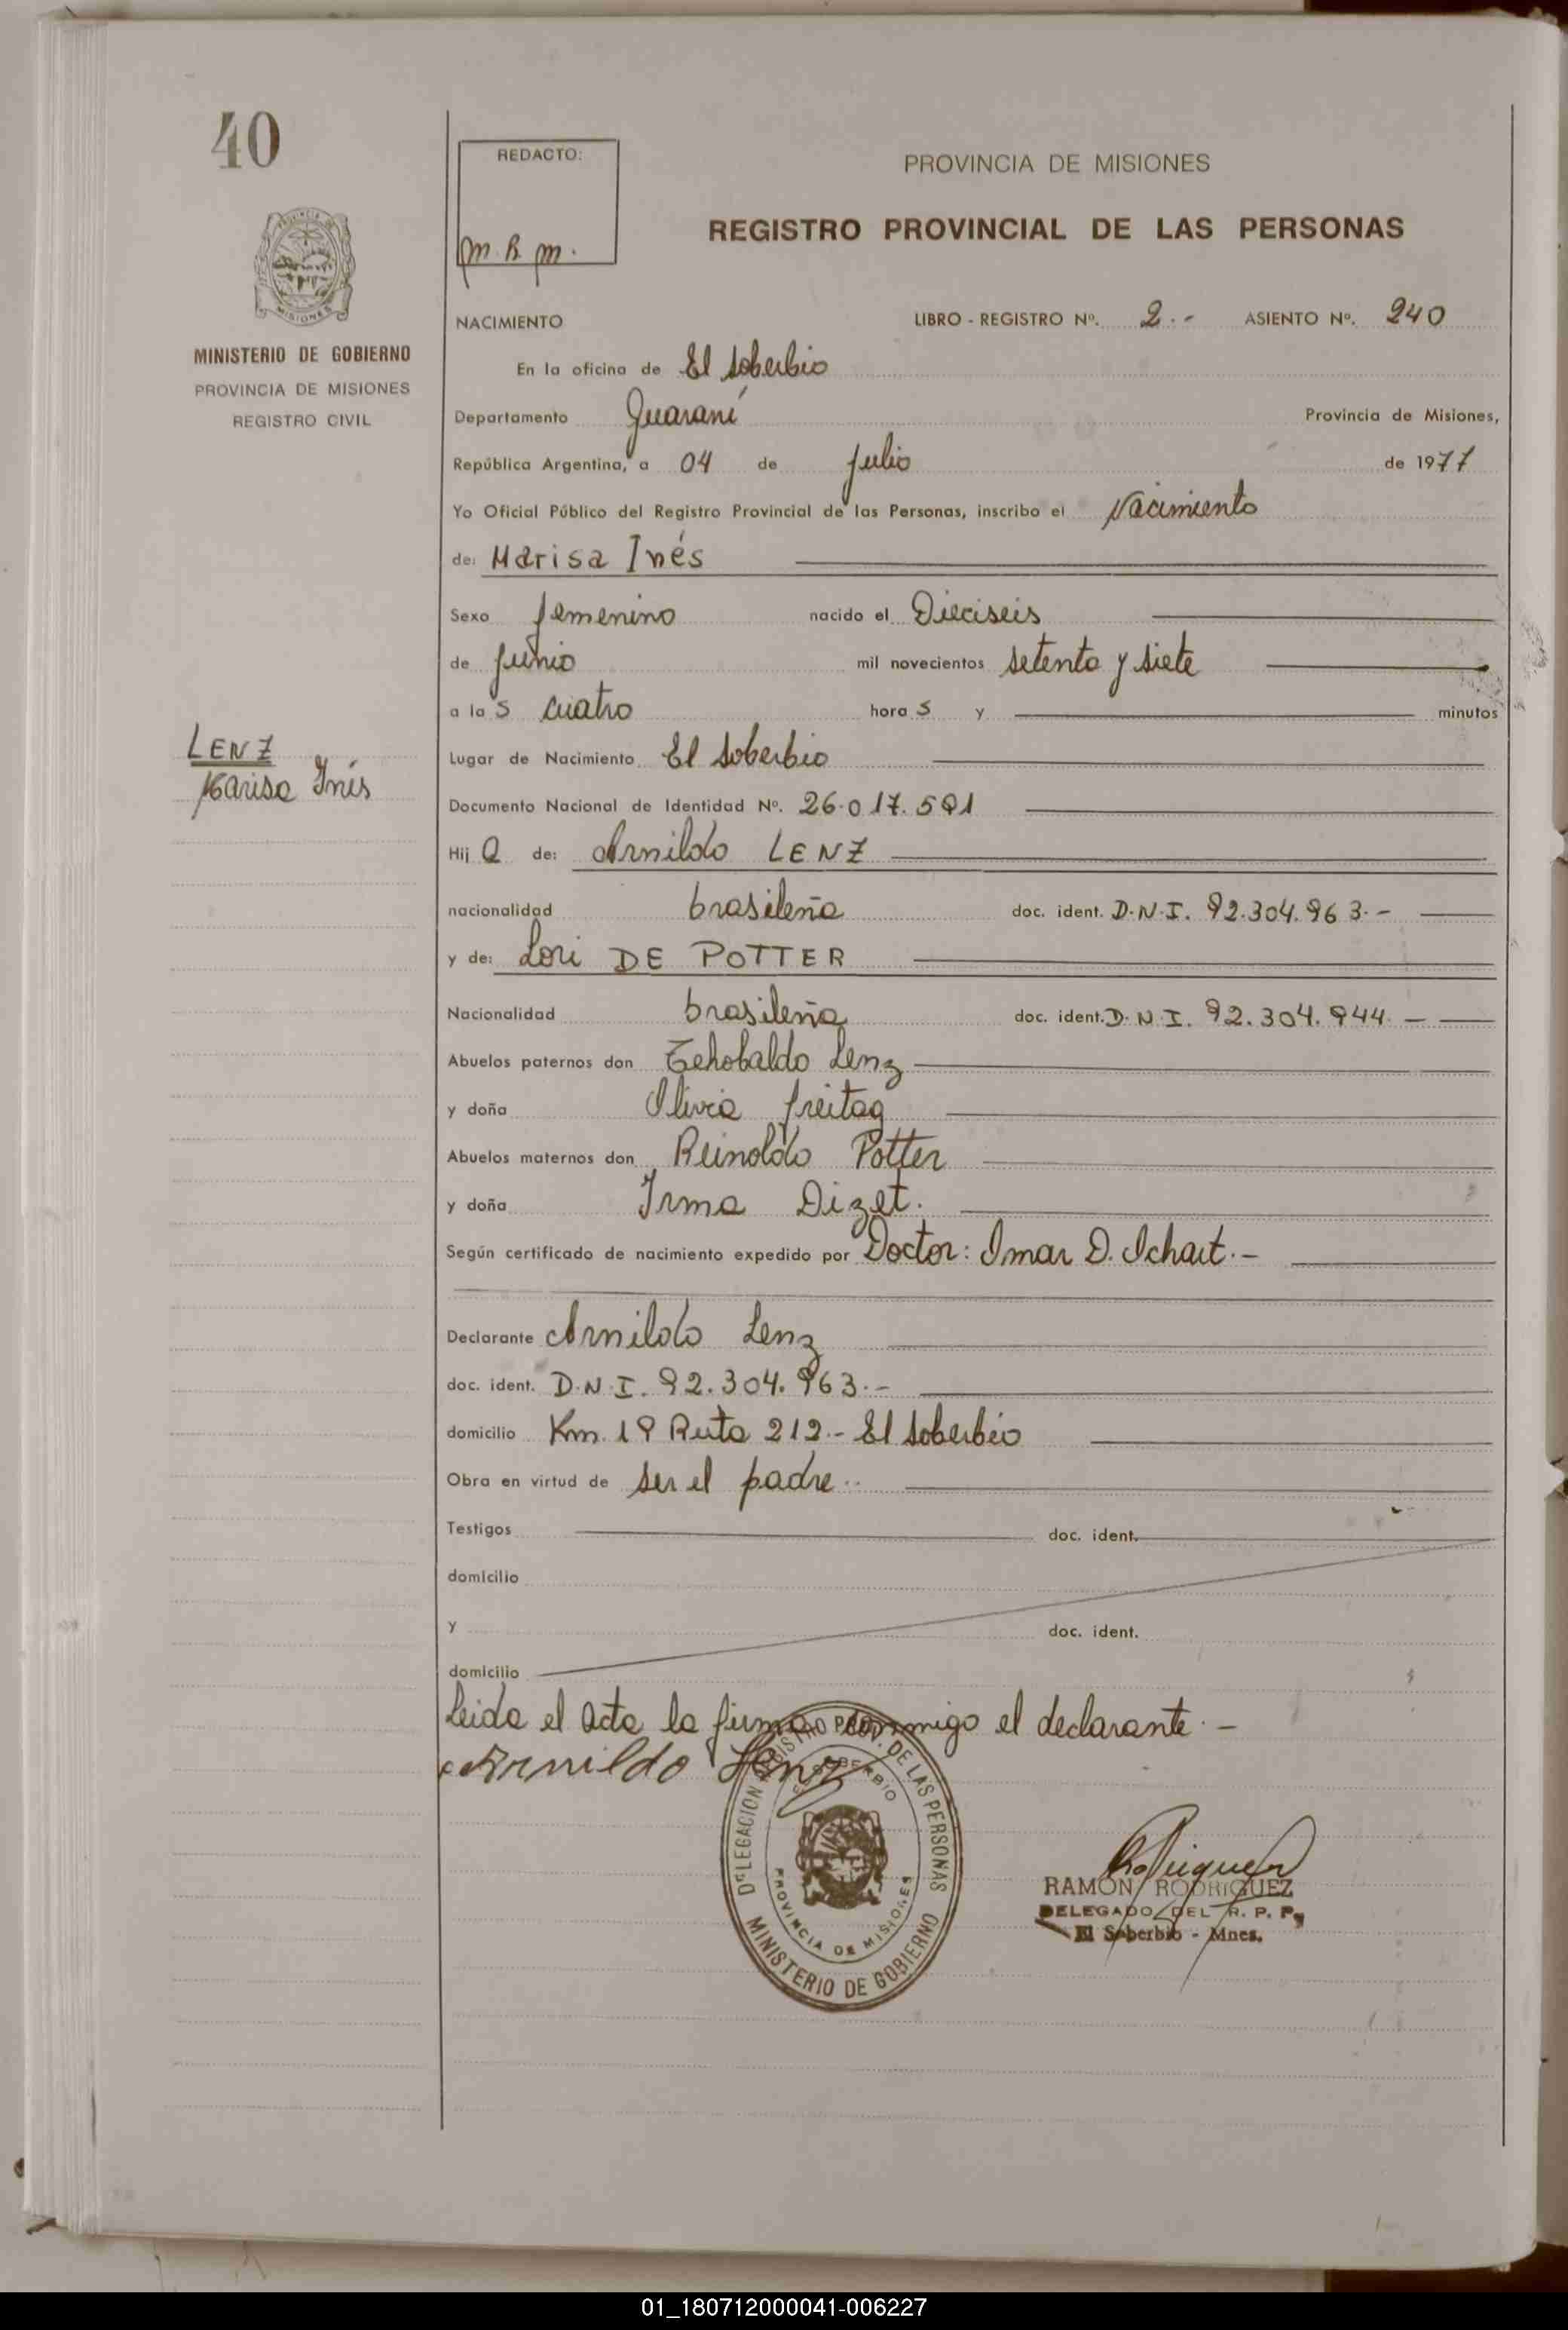 40
REDACTO:
M. R. M.
PROVINCIA DE MISIONES
REGISTRO PROVINCIAL DE LAS PERSONAS
MISIONES
MINISTERIO DE GOBIERNO
PROVINCIA DE MISIONES
REGISTRO CIVIL
NACIMIENTO LIBRO - REGISTRO Nº. 2.- ASIENTO Nº. 240
En la oficina de El Soberbio
Departamento Guaraní Provincia de Misiones,
República Argentina, a 04 de Julio de 1977
Yo Oficial Público del Registro Provincial de las Personas, inscribo el Nacimiento
de: Marisa Inés
Sexo femenino nacido el Dieciseis
de Junio mil novecientos setenta y siete
a las cuatro horas y minutos
LENZ
Marisa Inés
Lugar de Nacimiento El Soberbio
Documento Nacional de Identidad Nº. 26.017.591
Hija de: Arnildo LENZ
nacionalidad brasileña doc. ident. D.N.I. 92.304.963.-
y de: Lori DE POTTER
Nacionalidad brasileña doc. ident. D.N.I. 92.304.944 -
Abuelos paternos don Tehobaldo Lenz
y doña Olivia Freitag
Abuelos maternos don Reinoldo Potter
y doña Irma Dizet.
Según certificado de nacimiento expedido por Doctor: Omar D. Ichart.-
Declarante Arnildo Lenz
doc. ident. D.N.I. 92.304.963.-
domicilio Km. 19 Ruta 212.- El Soberbio
Obra en virtud de ser el padre..
Testigos doc. ident.
domicilio
y doc. ident.
domicilio
Leida el acta la firma conmigo el declarante.-
Arnildo Lenz
DELEGACION REGISTRO PROV. DE LAS PERSONAS
EL SOBERBIO
PROVINCIA DE MISIONES
MINISTERIO DE GOBIERNO
Rodriguez
RAMON RODRIGUEZ
DELEGADO DEL R. P. P.
El Soberbio - Mnes.
01_180712000041-006227